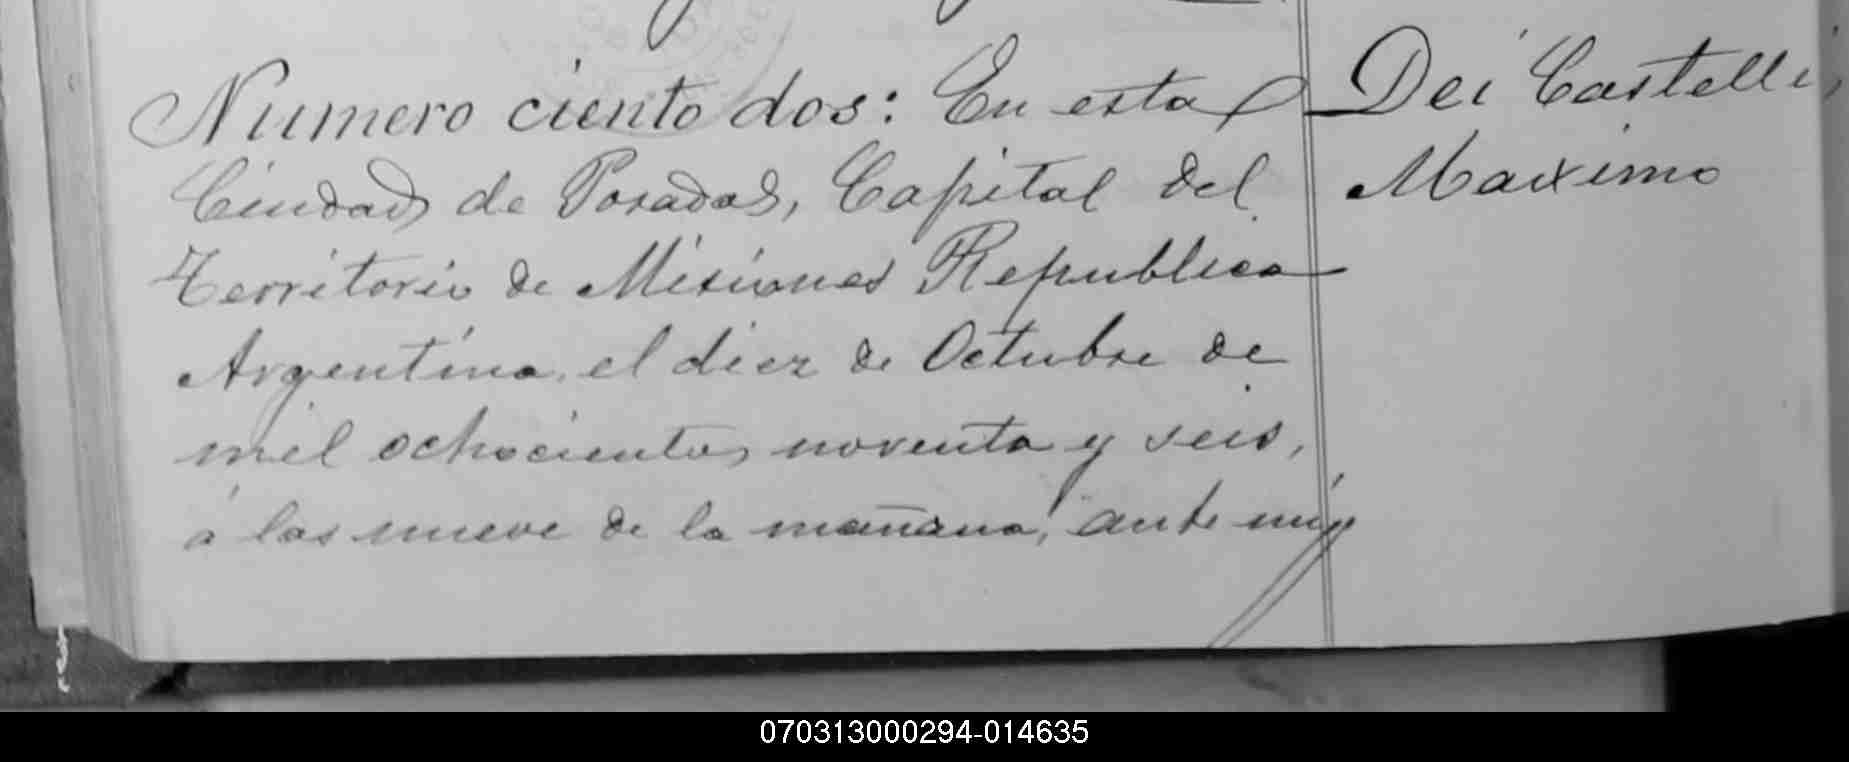 Numero ciento dos: En esta
Ciudad de Posadas, Capital del
Territorio de Misiones Republica
Argentina, el diez de Octubre de
mil ochocientos noventa y seis,
á las nueve de la mañana, ante mí,
Dei Castelli,
Maximo
070313000294-014635